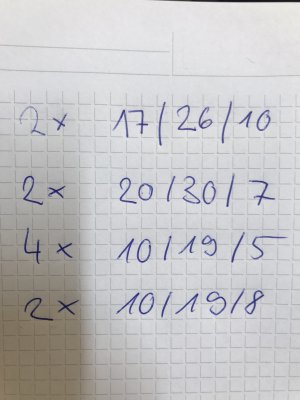 2x 17/26/10
2x 20/30/7
4x 10/19/5
2x 10/19/8